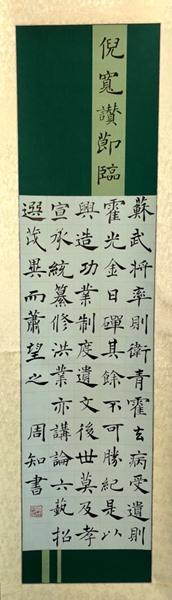 倪寬讚節臨
蘇武將率則衛青霍去病受遺則
霍光金日磾其餘不可勝紀是以
興造功業制度遺文後世莫及孝
宣承統纂修洪業亦講論六藝招
選茂異而蕭望之 周知書